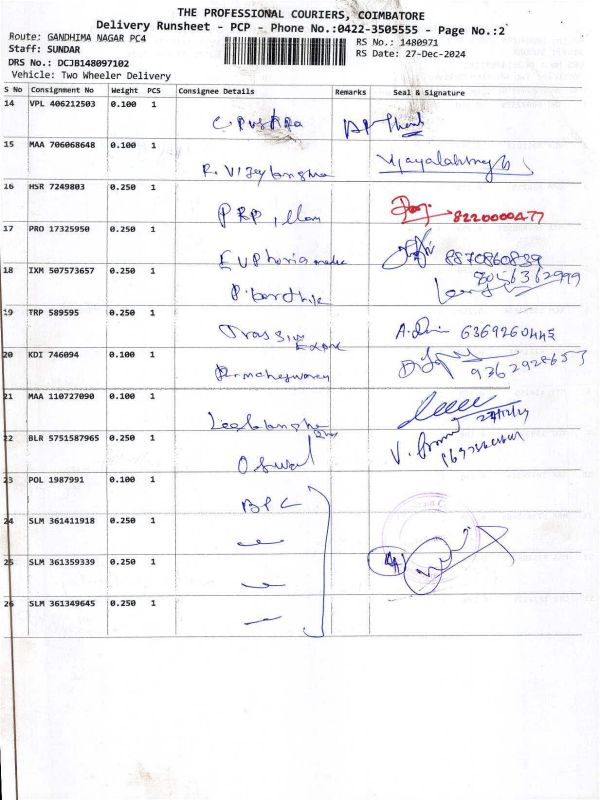 THE PROFESSIONAL COURIERS, COIMBATORE
Delivery Runsheet - PCP - Phone No.:0422-3505555 - Page No.:2
Route: GANDHIMA NAGAR PC4
RS No.: 1480971
Staff: SUNDAR
RS Date: 27-Dec-2024
DRS No.: DCJB148097102
Vehicle: Two Wheeler Delivery
S No Consignment No Weight PCS Consignee Details Remarks Seal & Signature
14 VPL 406212503 0.100 1
C. Pushpa
15 MAA 706068648 0.100 1
R. Vijaylakshma
16 HSR 7249803 0.250 1
8220000477
17 PRO 17325950 0.250 1
Euphoria 8870860839
18 IXM 507573657 0.250 1
8056362999
P. Karthik
19 TRP 589595 0.250 1
6369260445
20 KDI 746094 0.100 1
9362928653
21 MAA 110727090 0.100 1
27/12/24
22 BLR 5751587965 0.250 1
Oswal
23 POL 1987991 0.100 1
BPC
24 SLM 361411918 0.250 1
25 SLM 361359339 0.250 1
4
26 SLM 361349645 0.250 1